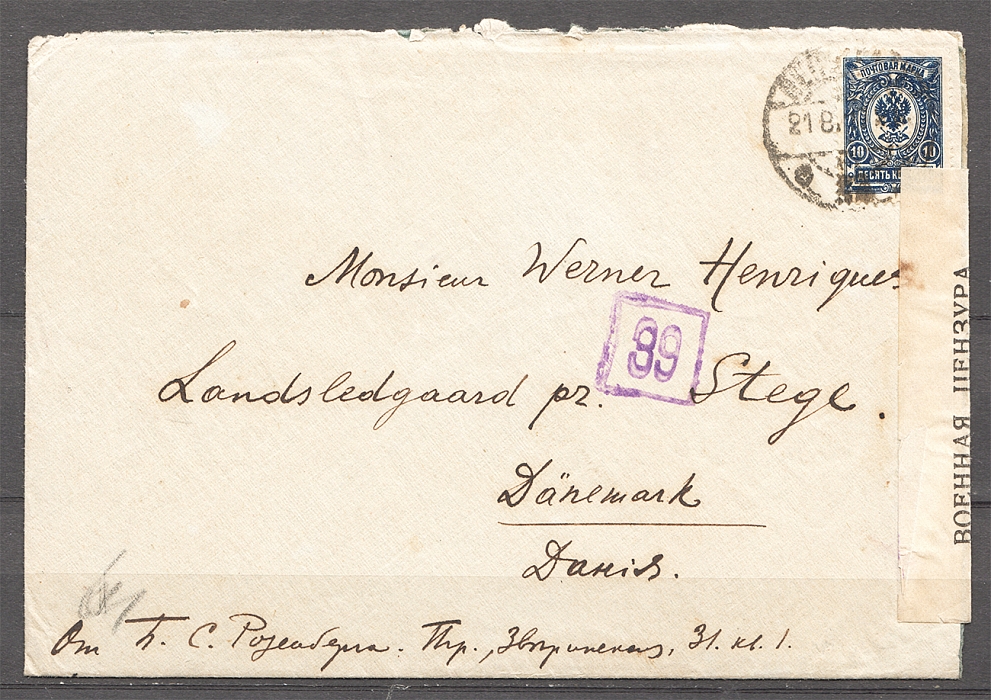 ПОЧТОВАЯ МАРКА
21 8.
10 10
ДЕСЯТЬ
Monsieur Werner Henriques
39
Landsledgaard pr. Stege.
Dänemark
Данія.
От Б. С. Розенберга. Птр., Звѣринская, 31. кв. 1.
ВОЕННАЯ ЦЕНЗУРА